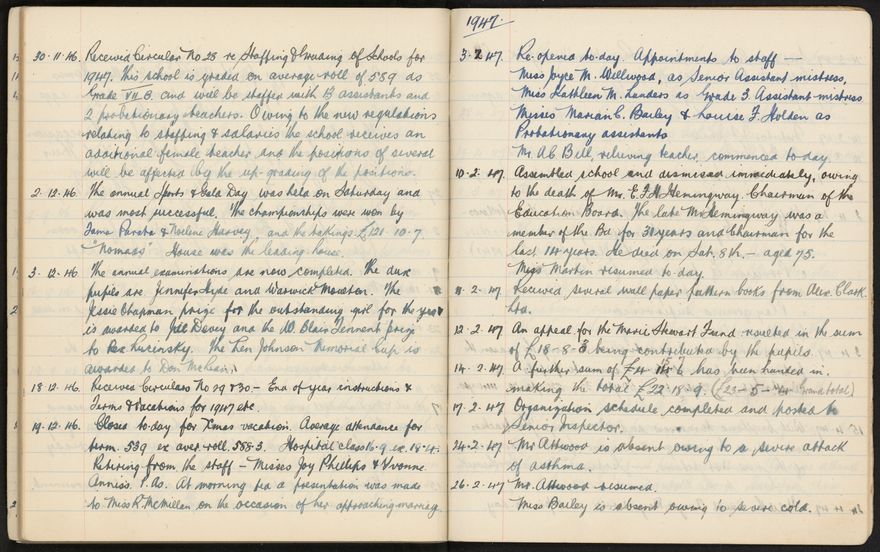 30-11-46. Received Circular No 28 re Staffing & Grading of Schools for
1947. This school is graded on average roll of 589 as
Grade VII B. and will be staffed with 13 assistants and
2 probationary teachers. Owing to the new regulations
relating to staffing & salaries the school receives an
additional female teacher and the positions of several
will be affected by the up-grading of the positions.
2-12-46 The annual Sports & Gala Day was held on Saturday and
was most successful. The championships were won by
Tama Paraha & Noelene Harvey, and the takings £121-10-7.
"Nomads" House was the leading house.
3-12-46 The annual examinations are now completed. The dux
pupils are Jennifer Hyde and Warwick Moreton. The
Jessie Chapman prize for the outstanding girl for the year
is awarded to Jill Davey and the W. Blair Tennent prize
to Rex Lucinsky. The Len Johnson Memorial Cup is
awarded to Don McLean.
18-12-46. Received Circulars No 29 & 30 – End of year instructions &
Terms & Vacations for 1947 etc.
19-12-46. Close to-day for Xmas vacation. Average attendance for
term. 539 ex aver. roll. 588.3. Hospital class 16.9 ex. 18.4.
Retiring from the staff – Misses Joy Phillips & Yvonne
P.As. At morning tea a presentation was made
to Miss R. McMillan on the occasion of her approaching marriage
1947.
3.2.47. Re-opened to-day. Appointments to staff —
Miss Joyce M. Wellwood, as Senior Assistant mistress,
Miss Kathleen M. Landers as Grade 3. Assistant mistress
Misses Marian C. Bailey & Louise F. Holden as
Probationary assistants
Mr. A.C. Bell, relieving teacher, commenced to-day.
10-2-47. Assembled school and dismissed immediately, owing
to the death of Mr. E.F.H. Hemingway. Chairman of the
Education Board. The late Mr Hemingway was a
member of the Bd. for 30 years and Chairman for the
last 14 years. He died on Sat. 8th. – aged 75.
Miss Martin resumed to-day.
11-2-47 Received several wall paper pattern books from Alex. Clark
Ltd.
12-2-47 An appeal for the Marie Stewart Fund resulted in the sum
of £18-8-3 being contributed by the pupils.
14-2-47. A further sum of £4-10-6 has been handed in.
making the total £22-18-9. (£23-5-4 Grand total)
17-2-47 Organization schedule completed and posted to
Senior Inspector.
24-2-47 Mr Attwood is absent owing to a severe attack
of asthma.
26-2-47 Mr. Attwood resumed.
Miss Bailey is absent owing to severe cold.